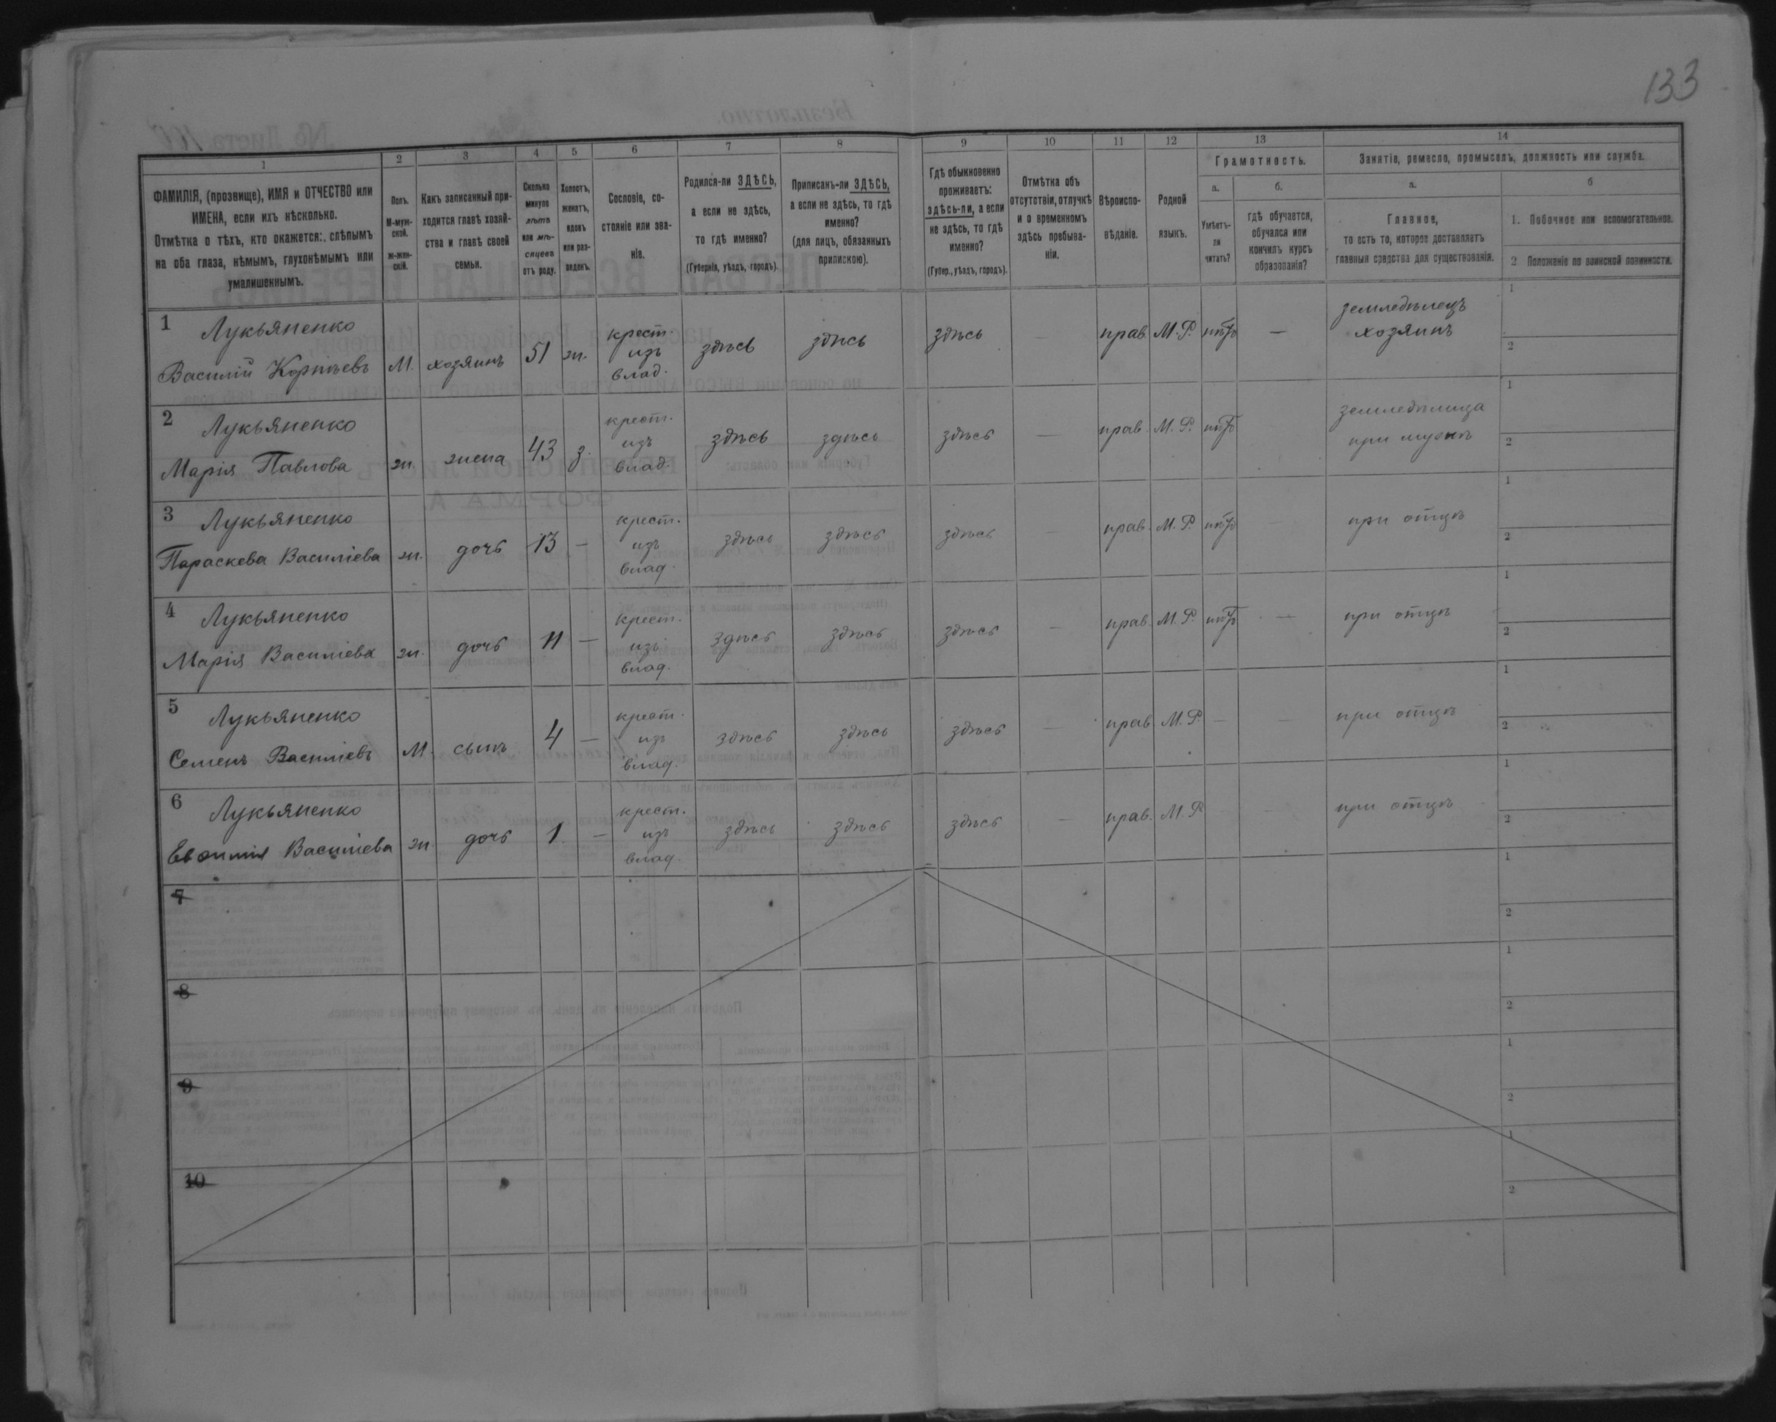 133
1 2 3 4 5 6 7 8 9 10 11 12 13 14
ФАМИЛІЯ, (прозвище), ИМЯ и ОТЧЕСТВО или
ИМЕНА, если ихъ нѣсколько.
Отмѣтка о тѣхъ, кто окажется: слѣпымъ
на оба глаза, нѣмымъ, глухонѣмымъ или
умалишеннымъ.
Полъ.
М-муж-
ской.
Ж-жен-
скій.
Какъ записанный при-
ходится главѣ хозяй-
ства и главѣ своей
семьи.
Сколько
минуло
лѣтъ
или мѣ-
сяцевъ
отъ роду.
Холостъ,
женатъ,
вдовъ
или раз-
веденъ.
Сословіе, со-
стояніе или зва-
ніе.
Родился-ли ЗДѢСЬ,
а если не здѣсь,
то гдѣ именно?
(Губернія, уѣздъ, городъ).
Приписанъ-ли ЗДѢСЬ,
а если не здѣсь, то гдѣ
именно?
(для лицъ, обязанныхъ
припискою).
Гдѣ обыкновенно
проживаетъ:
здѣсь-ли, а если
не здѣсь, то гдѣ
именно?
(Губер., уѣздъ, городъ).
Отмѣтка объ
отсутствіи, отлучкѣ
и о временномъ
здѣсь пребыва-
ніи.
Вѣроиспо-
вѣданіе.
Родной
языкъ.
Грамотность.
а.
Умѣетъ-
ли
читать?
б.
гдѣ обучается,
обучался или
кончилъ курсъ
образованія?
Занятіе, ремесло, промыселъ, должность или служба.
а.
Главное,
то есть то, которое доставляетъ
главныя средства для существованія.
б
1. Побочное или вспомогательное.
2 Положеніе по воинской повинности.
1 Лукьяненко
Василій Корнѣевъ М. хозяинъ 51 ж. крест. изъ влад. здѣсь здѣсь здѣсь — прав. М.Р. нѣтъ — земледѣлецъ хозяинъ 1 2
2 Лукьяненко
Марія Павлова ж. жена 43 з. крест. изъ влад. здѣсь здѣсь здѣсь — прав. М.Р. нѣтъ земледѣлица при мужѣ 1 2
3 Лукьяненко
Параскева Василіева ж. дочь 13 — крест. изъ влад. здѣсь здѣсь здѣсь — прав. М.Р. нѣтъ при отцѣ 1 2
4 Лукьяненко
Марія Василіева ж. дочь 11 — крест. изъ влад. здѣсь здѣсь здѣсь — прав. М.Р. нѣтъ — при отцѣ 1 2
5 Лукьяненко
Семенъ Василіевъ М. сынъ 4 — крест. изъ влад. здѣсь здѣсь здѣсь — прав. М.Р. — — при отцѣ 1 2
6 Лукьяненко
Евѳимія Василіева ж. дочь 1 — крест. изъ влад. здѣсь здѣсь здѣсь — прав. М.Р. при отцѣ 1 2
7 1 2
8 1 2
9 1 2
10 1 2